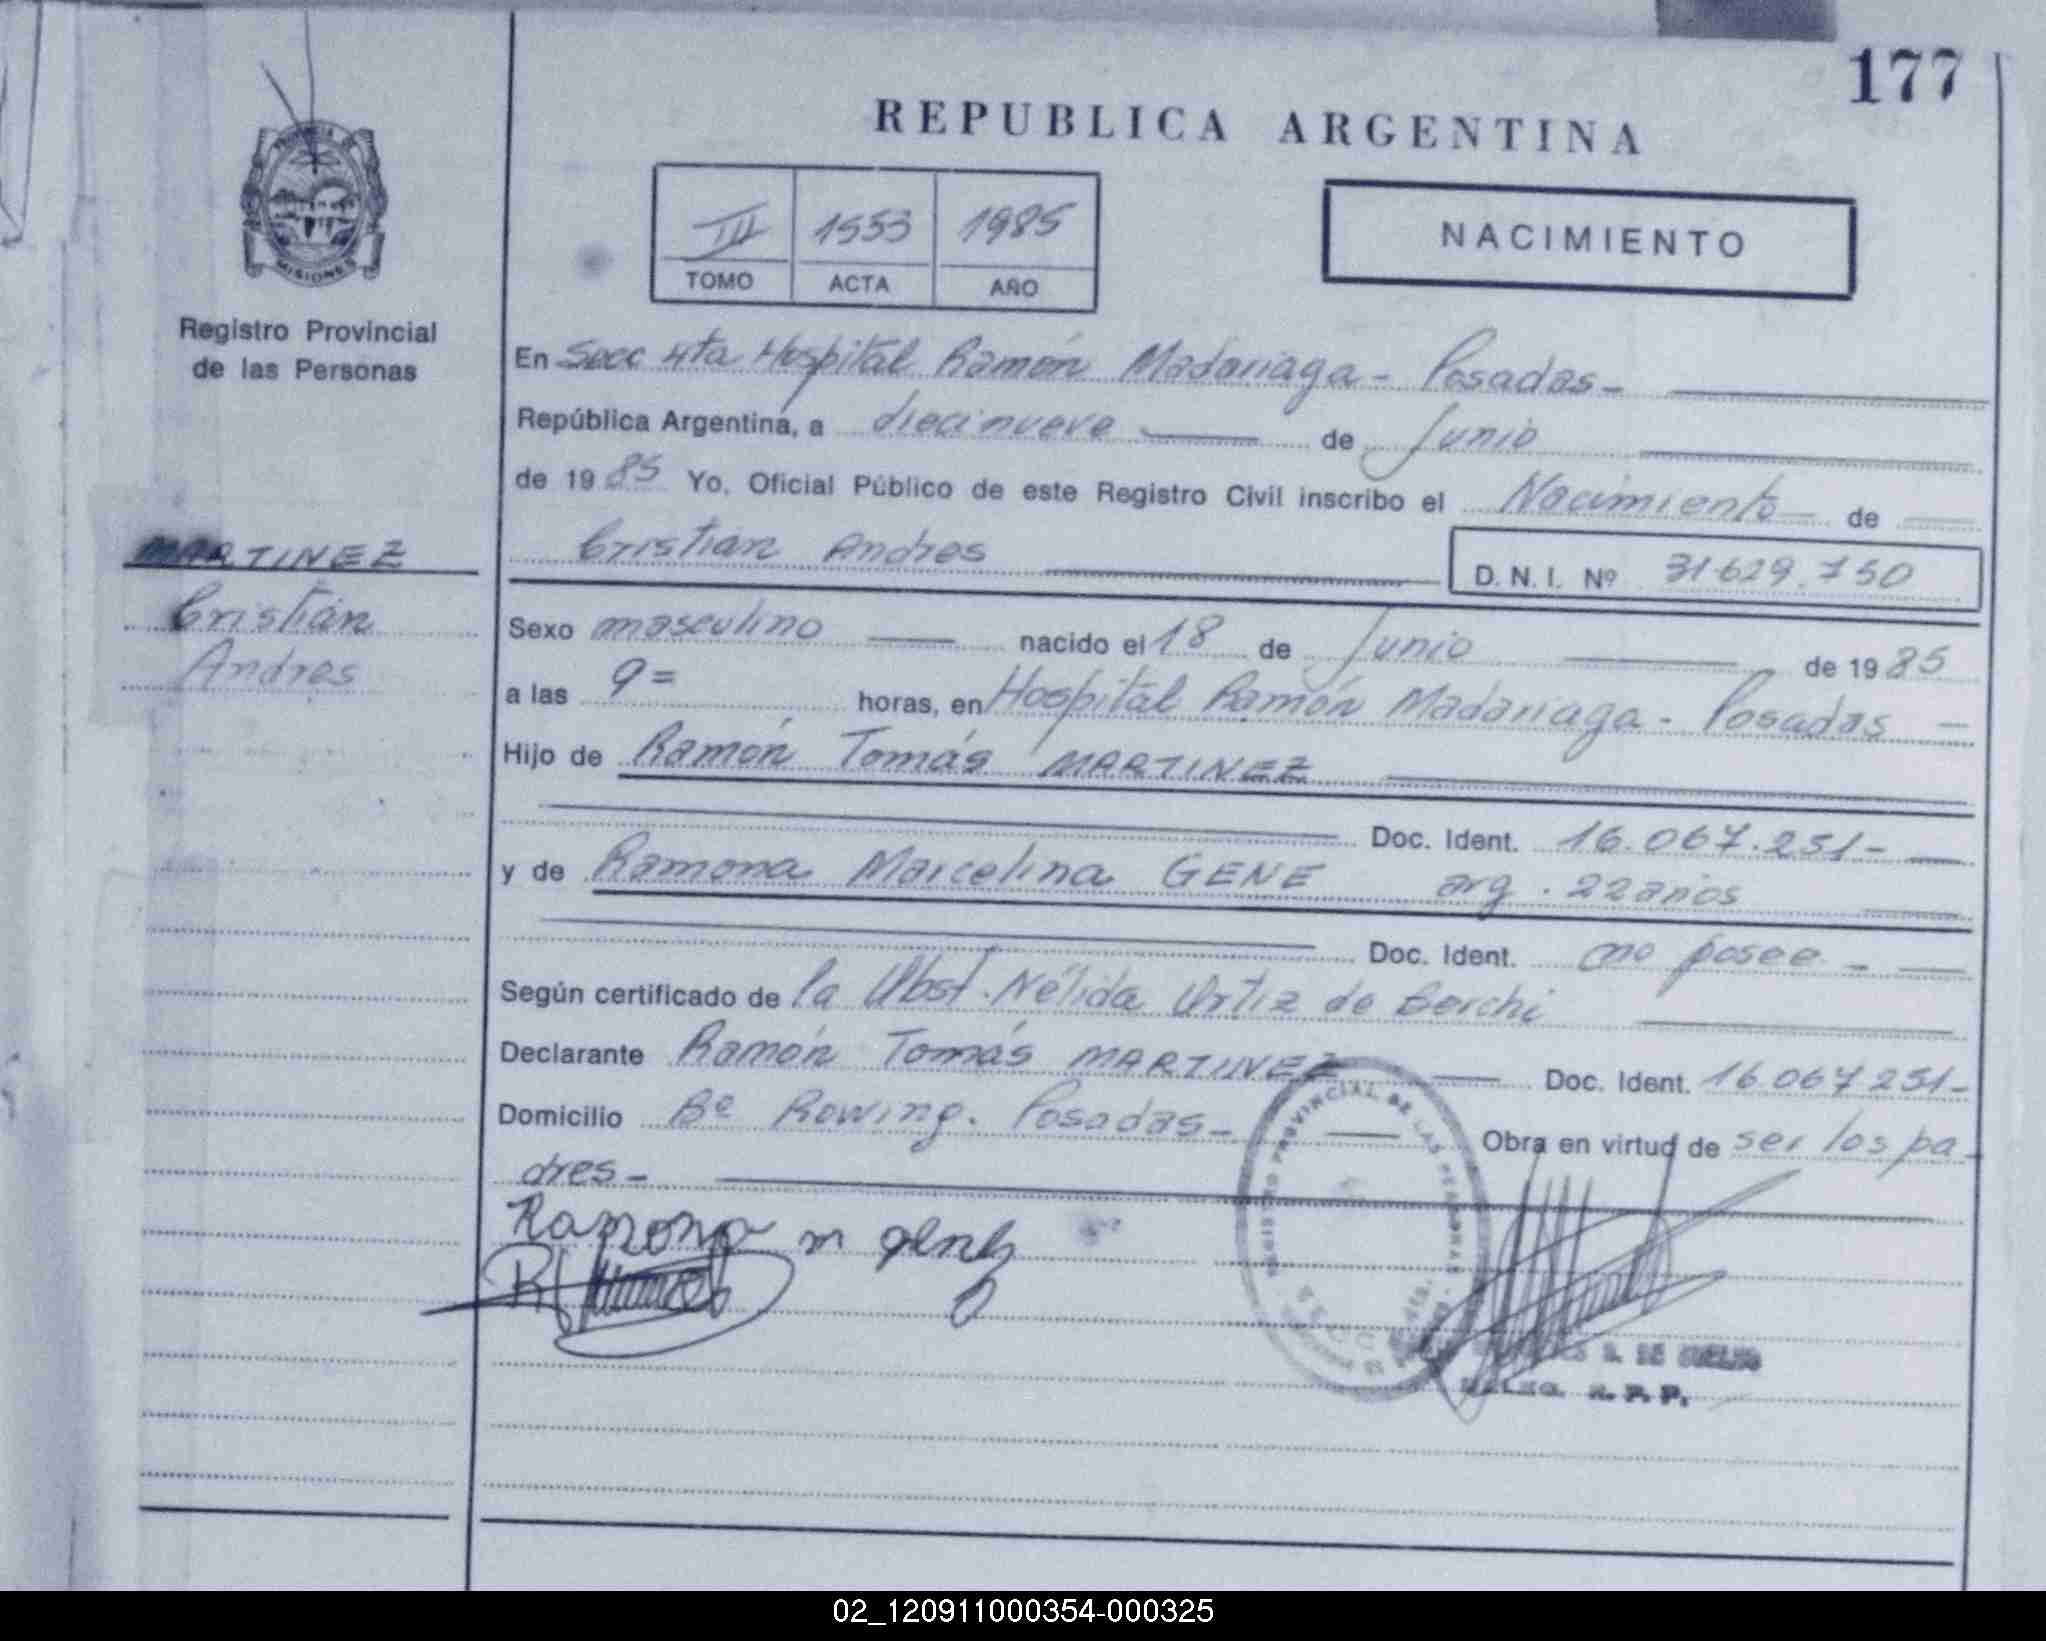 177
REPUBLICA ARGENTINA
PROVINCIA DE
MISIONES
III 1553 1985
TOMO ACTA AÑO
NACIMIENTO
Registro Provincial
de las Personas
MARTINEZ
Cristian
Andres
En Secc 4ta Hospital Ramón Madariaga - Posadas -
República Argentina, a diecinueve de Junio
de 1985 Yo, Oficial Público de este Registro Civil inscribo el Nacimiento de
Cristian Andres D.N.I. Nº 31629.750
Sexo masculino nacido el 18 de Junio de 1985
a las 9= horas, en Hospital Ramón Madariaga - Posadas -
Hijo de Ramón Tomás MARTINEZ
Doc. Ident. 16.067.251-
y de Ramona Marcelina GENE arg. 22 años
Doc. Ident. no posee -
Según certificado de la Obst. Nélida Ortiz de Berchi
Declarante Ramón Tomás MARTINEZ Doc. Ident. 16.067 251-
Domicilio Bº Rowing. Posadas - Obra en virtud de ser los pa-
dres -
Ramona m
REGISTRO PROVINCIAL DE LAS PERSONAS
DELEG. R. P. P.
02_120911000354-000325